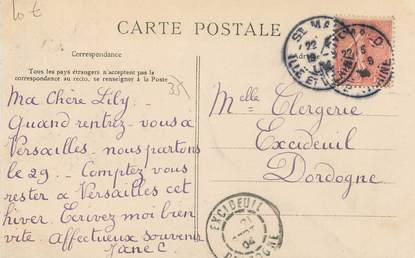 10 €
CARTE POSTALE
Correspondance
Tous les pays étrangers n'acceptent pas la
correspondance au recto, se renseigner à la Poste
35
Ma Chère Lily.
Quand rentrez-vous à
Versailles - nous partons
le 29 - - Comptez vous
rester à Versailles cet
hiver. Ecrivez moi bien
vite. Affectueux souvenir
Jane C.
Melle Clergerie
Excideuil
Dordogne
ST MA
22
ILLE ET
EXCIDEUIL
21
04
DORDOGNE